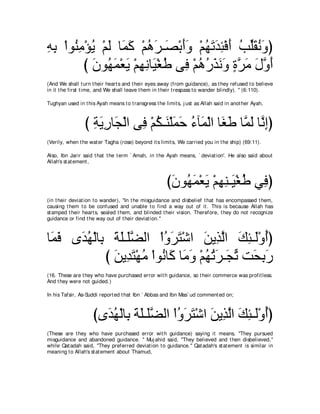 ﴿وَنُقَلِّبُ أَفْئِدَتَهُمْ وَأَبْصَـرَهُمْ كَمَا لَمْ يُؤْمِنُواْ بِهِ
أَوَّلَ مَرَّةٍ وَنَذَرُهُمْ فِى طُغْيَانِهِمْ يَعْمَهُونَ ﴾
(And We shall turn their hearts and their eyes away (from guidance), as they refused to believe
in it the first time, and We shall leave them in their trespass to wander blindly). " (6:110).
Tughyan used in this Ayah means to transgress the limits, just as Allah said in another Ayah,
﴿إِنَّا لَمَّا طَغَا الْمَآءُ حَمَلْنَـكُمْ فِى الْجَارِيَةِ ﴾
(Verily, when the water Tagha (rose) beyond its limits, We carried you in the ship) (69:11).
Also, Ibn Jarir said that the term `Amah, in the Ayah means, `deviation'. He also said about
Allah's statement,
﴿فِي طُغْيَـنِهِمْ يَعْمَهُونَ﴾
(in their deviation to wander), "In the misguidance and disbelief that has encompassed them,
causing them to be confused and unable to find a way out of it. This is because Allah has
stamped their hearts, sealed them, and blinded their vision. Therefore, they do not recognize
guidance or find the way out of their deviation."
﴿أُوْلَـئِكَ الَّذِينَ اشْتَرَوُاْ الضَّلَـلَةَ بِالْهُدَى فَمَا
رَبِحَت تِّجَـرَتُهُمْ وَمَا كَانُواْ مُهْتَدِينَ ﴾
(16. These are they who have purchased error with guidance, so their commerce was profitless.
And they were not guided.)
In his Tafsir, As-Suddi reported that Ibn `Abbas and Ibn Mas`ud commented on;
﴿أُوْلَـئِكَ الَّذِينَ اشْتَرَوُاْ الضَّلَـلَةَ بِالْهُدَى﴾
(These are they who have purchased error with guidance) saying it means, "They pursued
misguidance and abandoned guidance. " Mujahid said, "They believed and then disbelieved,"
while Qatadah said, "They preferred deviation to guidance." Qatadah's statement is similar in
meaning to Allah's statement about Thamud,